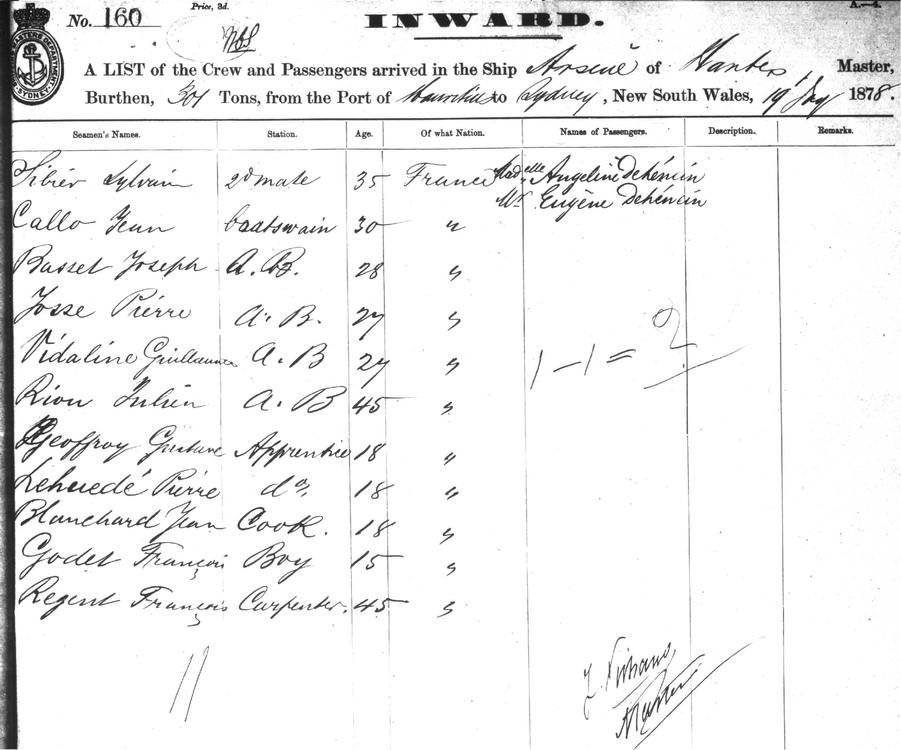 No. 160
Price, 3d.
INWARD.
A.—4.
A LIST of the Crew and Passengers arrived in the Ship Arsène of Nantes, Master,
Burthen, 301 Tons, from the Port of Mauritius to Sydney, New South Wales, 19 1878.
Seamen's Names. Station. Age. Of what Nation. Names of Passengers. Description. Remarks.
Sylvain 2d mate 35 France Madelle Angeline Dehénein
Mr Eugène Dehénein
Callo Jean boatswain 30 "
Basset Joseph A.B. 28 "
Josse Pierre A.B. 27 "
Vidaline Guillaume A.B 27 "
Rion Julien A.B 45 "
Geoffroy Gustave Apprentice 18 "
Lehuédé Pierre do, 18 "
Blanchard Jean Cook. 18 "
Godet François Boy 15 "
Regent François Carpenter. 45 "
1 - 1 = 2
11
Master